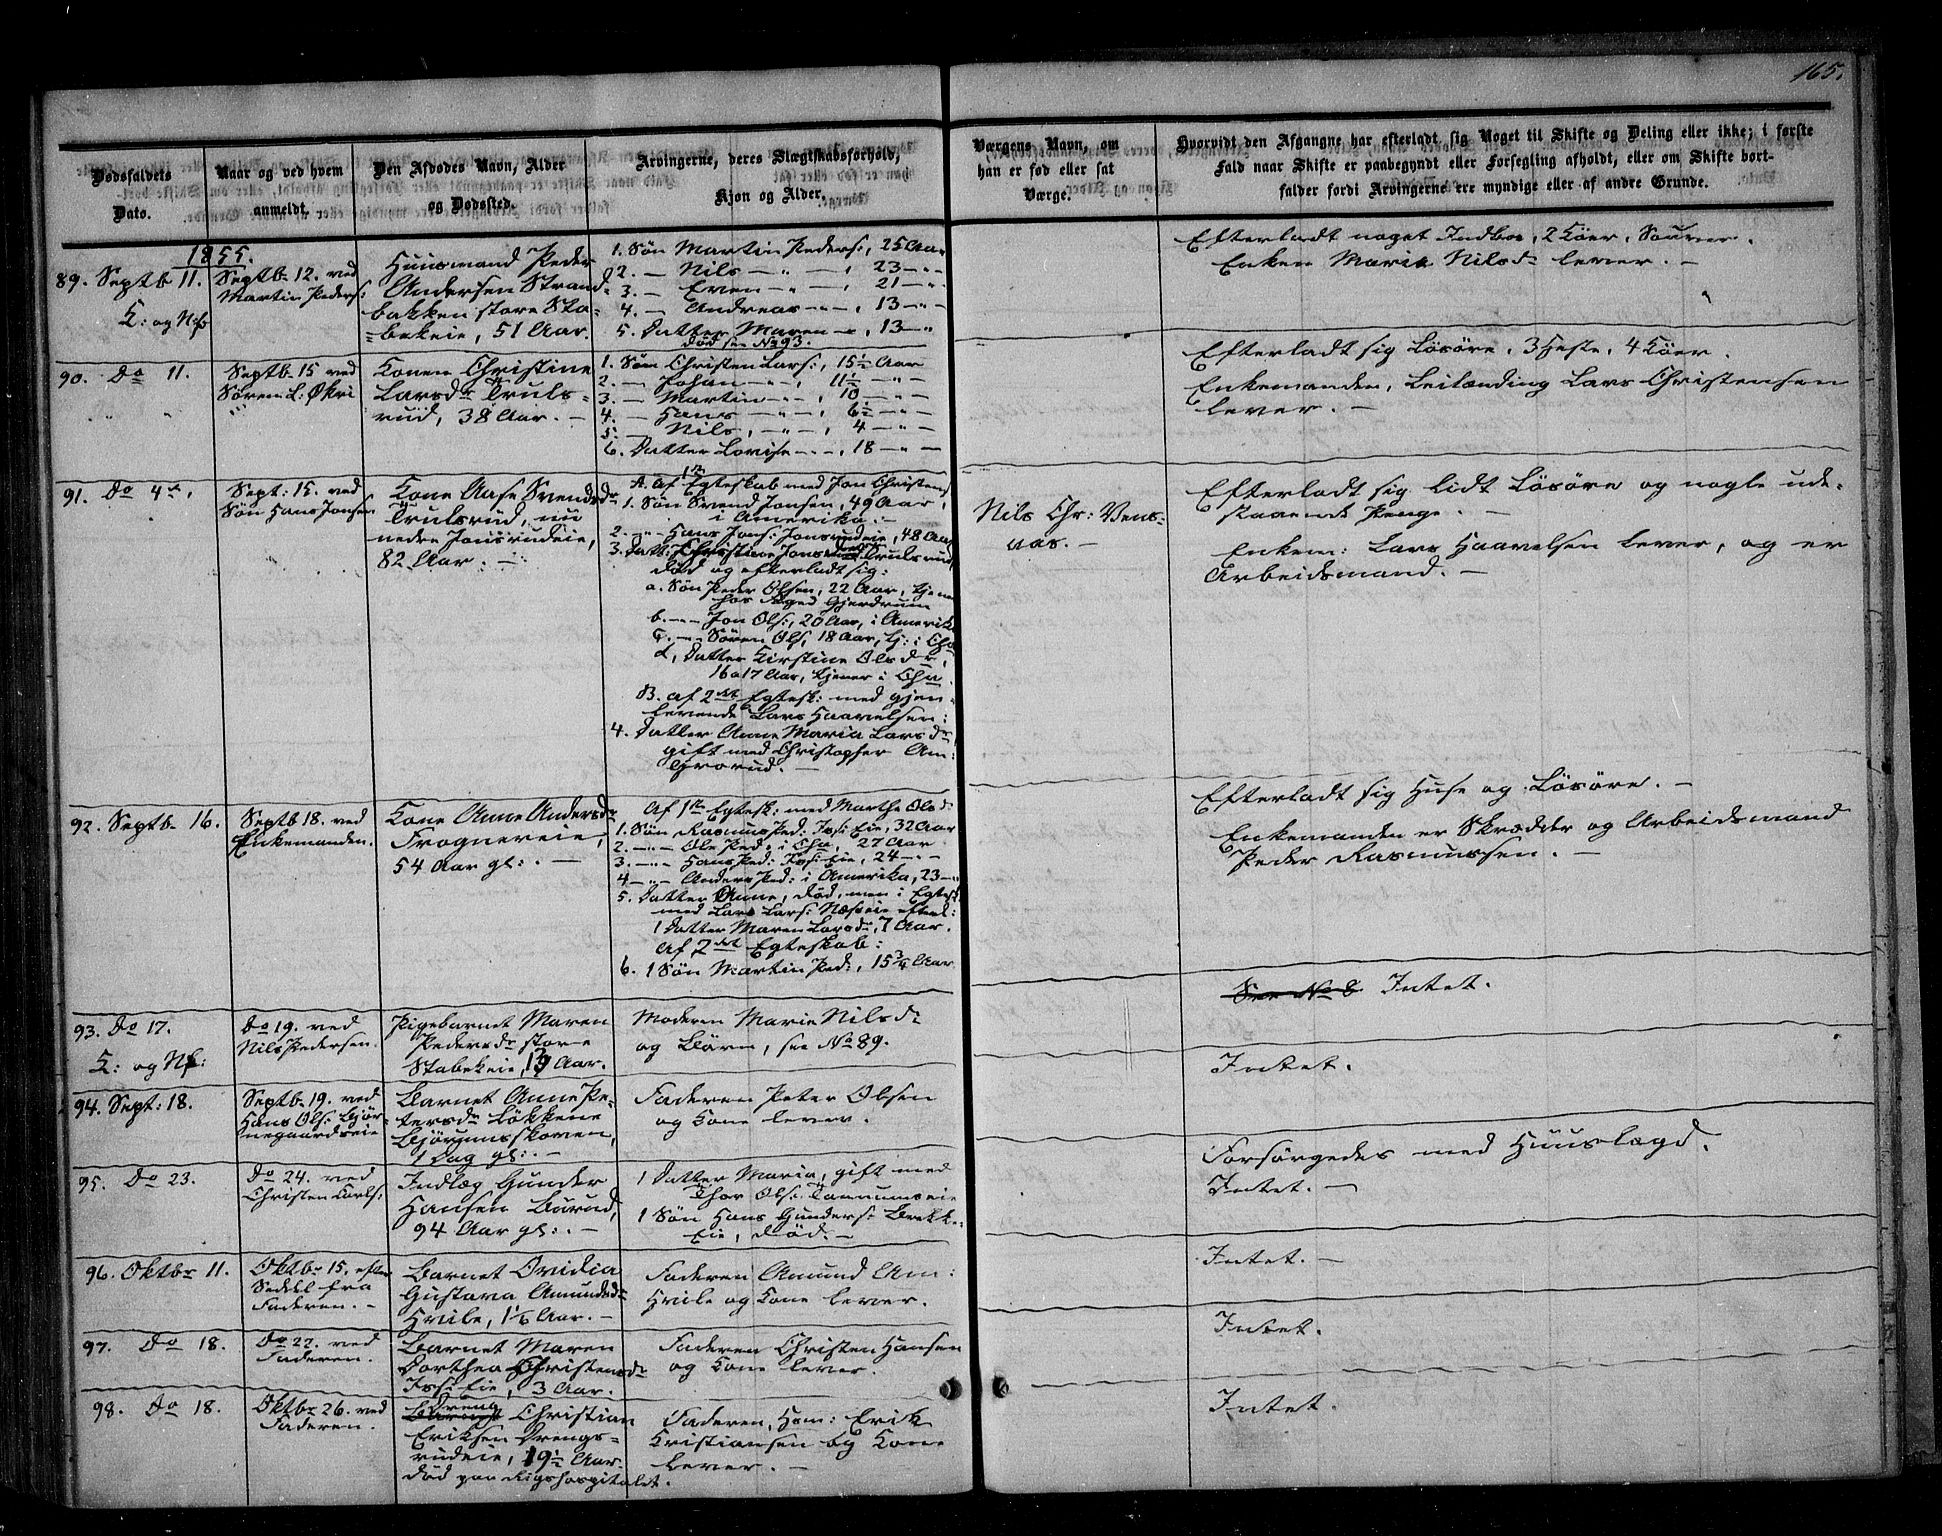 165.
Dødsfaldets
Dato.
Naar og ved hvem
anmeldt.
Den Afdødes Navn, Alder
og Dødssted.
Arvingerne, deres Slægtskabsforhold,
Kjøn og Alder.
Værgens Navn, om
han er fød eller sat
Værge.
Hvorvidt den Afgangne har efterladt sig Noget til Skifte og Deling eller ikke; i første
Fald naar Skifte er paabegyndt eller Forsegling afholdt, eller om Skifte bort-
falder fordi Arvingerne ere myndige eller af andre Grunde.
1855.
89. Septb 11.
K: og Nf:
Septb. 12. ved
Martin Peders:
Huusmand Peder
Andersen Strand-
bakken store Sta-
bekeie, 51 Aar.
1. Søn Martin Peders:, 25 Aar
2. — Nils — " — , 23 — " —
3. — Even — " — , 21 — " —
4. — Andreas — " — , 13 — " —
5. Datter Maren — " , 13 — "
død see No 93.
Efterladt noget Indbo, 2 Køer, Sauer.
Enken Marie Nilsdr lever. —
90. Do 11.
Septb 15 ved
Søren L: Økri
Konen Christine
Larsdr Truls-
rud, 38 Aar. —
1. Søn Christen Lars:, 15½ Aar
2. — Johan — " — , 11½ — " —
3. — Martin — " — , 10 — " —
4. — Hans — " — , 6½ — " —
5. — Nils, — " — , 4 — " —
6. Datter Lovise — " — , 18 — " —
Efterladt sig Løsøre, 3 Heste, 4 Køer.
Enkemanden, Leilænding Lars Christensen
lever. —
91. Do 4de.
Sept: 15. ved
Søn Hans Jonsen
Kone Aase Svendsdr
Trulsrud, nu
nedre Jonsrudeie,
82 Aar. —
A. Af 1ste Egteskab med Jon Christens:
1. Søn Svend Jonsen, 49 Aar,
i Amerika. —
2. — " — Hans Jons: Jonsrudeie, 48 Aar
3. Datt: Christine Jonsdr Trulsrud,
død og efterladt sig:
a. Søn Peder Olsen, 22 Aar, tjener
hos Foged Gjerdrum
b. — " — Jon Ols:, 20 Aar, i Amerika
c. — " — Søren Ols, 18 Aar, tj: i Cha
d, Datter Kirstine Olsdr,
16 a 17 Aar, tjener i Cha.
B. af 2det Egtesk: med gjen-
levende Lars Haavelsen:
4. Datter Anne Maria Larsdr
gift med Christopher Am:
Grorud. —
Nils Chr: Vens-
aas. —
Efterladt sig lidt Løsøre og nogle ude-
staaende Penge. —
Enkem: Lars Haavelsen lever, og er
Arbeidsmand. —
92. Septb. 16.
Septb 18. ved
Enkemanden.
Kone Anne Andersdr
Frognereie,
54 Aar gl:. —
Af 1ste Egtesk: med Marthe Olsdr
1. Søn Rasmus Ped: Fossi Eie, 32 Aar
2. — " — Ole Ped: i Cha, 27 Aar
3. — " — Hans Ped: Eie, 24 — " —
4 — " — Anders Ped: i Amerika, 23 — "
5. Datter Anne, død, men i Egtesk:
med Lars Lars: Næseie efterl:
1 Datter Maren Larsdr, 7 Aar.
Af 2det Egteskab:
6. 1 Søn Martin Ped:, 15¾ Aar.
Efterladt sig Huse og Løsøre. —
Enkemanden er Skrædder og Arbeidsmand
Peder Rasmussen. —
93. Do 17.
K: og Nf:
Do 19. ved
Nils Pedersen.
Pigebarnet Maren
Pedersdr store
Stabekeie, 13 Aar.
Moderen Marie Nilsdr
og Børn, see No 89.
See No 8 Intet.
94. Sept: 18.
Septb. 19. ved
Hans Ols: Bjør-
negaardseie
Barnet Anne Pe-
tersdr Løkkene
Bjørumsskoven,
1 Dag gl:. —
Faderen Peter Olsen
og Kone lever.
Intet.
95. Do 23.
Do 24. ved
Christen Carls:
Indlæg Gunder
Hansen Burud,
94 Aar gl:. —
1 Datter Maria, gift med
Thor Ols: Tanumseie
1 Søn Hans Gunders: Bakke-
Eie, død. —
Forsørgedes med Huuslagd.
Intet. —
96. Oktbr 11.
Oktbr 15. efter
Seddel fra
Faderen. —
Barnet Ovidia
Gustava Amundsdr
Hvile, 1⅙ Aar. —
Faderen Amund Am:
Hvile og Kone lever.
Intet. —
97. Do 18.
Do 22. ved
Faderen.
Barnet Maren
Dorthea Christensdr
Fossi Eie, 3 Aar.
Faderen Christen Hansen
og Kone lever.
Intet.
98. Do 18.
Oktbr 26. ved
Faderen.
Dreng
Barnet Christian
Eriksen Drengs-
rudeie, 19½ Aar.
død paa Rigshospitalet.
Faderen, Hsm: Erik
Kristiansen og Kone
lever. —
Intet.